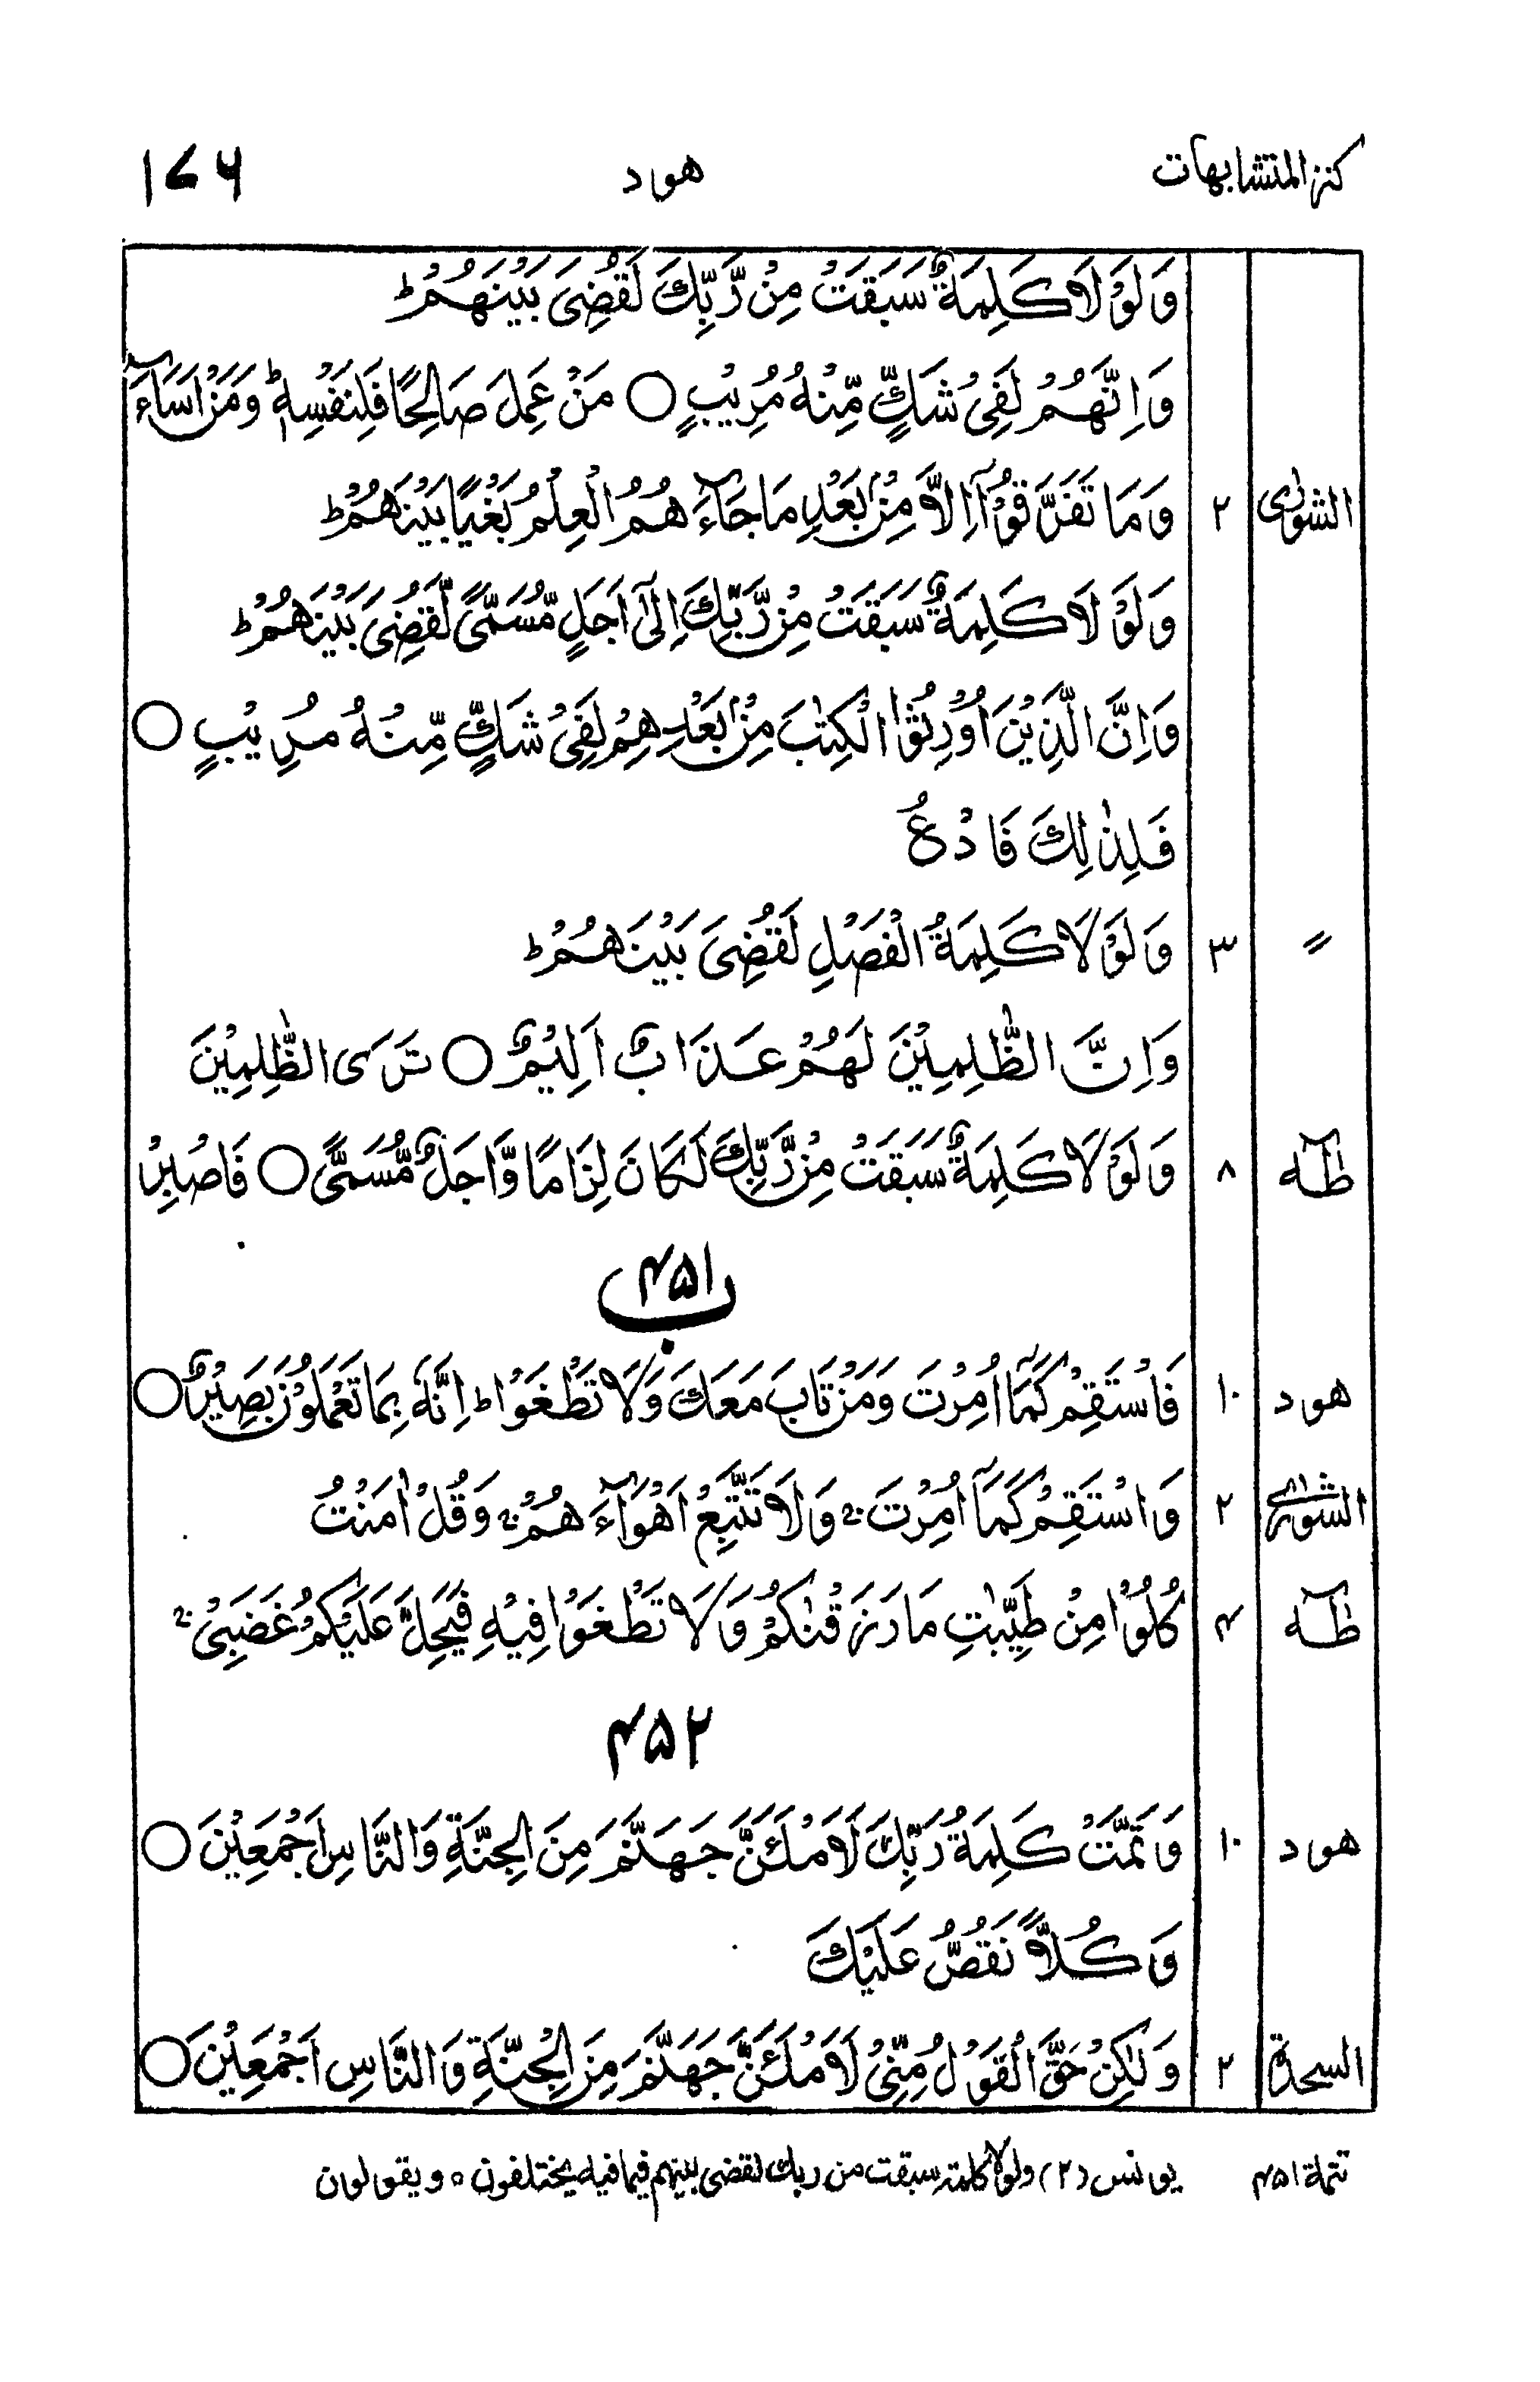 كنز المتشابهات هود ١٧٦
وَلَوْ لَا كَلِمَةٌ سَبَقَتْ مِنْ رَّبِّكَ لَقُضِىَ بَيْنَهُمْ ؕ
وَاِنَّهُمْ لَفِىْ شَكٍّ مِّنْهُ مُرِيْبٍ ○ مَنْ عَمِلَ صَالِحًا فَلِنَفْسِهٖ ؕ وَمَنْ اَسَآءَ
الشورٰى ٢ وَمَا تَفَرَّقُوْٓا اِلَّا مِنْۢ بَعْدِ مَا جَآءَهُمُ الْعِلْمُ بَغْيًا بَيْنَهُمْ ؕ
وَلَوْ لَا كَلِمَةٌ سَبَقَتْ مِنْ رَّبِّكَ اِلٰٓى اَجَلٍ مُّسَمًّى لَّقُضِىَ بَيْنَهُمْ ؕ
وَاِنَّ الَّذِيْنَ اُوْرِثُوا الْكِتٰبَ مِنْۢ بَعْدِهِمْ لَفِىْ شَكٍّ مِّنْهُ مُرِيْبٍ ○
فَلِذٰلِكَ فَادْعُ
〃 ٣ وَلَوْ لَا كَلِمَةُ الْفَصْلِ لَقُضِىَ بَيْنَهُمْ ؕ
وَاِنَّ الظّٰلِمِيْنَ لَهُمْ عَذَابٌ اَلِيْمٌ ○ تَرَى الظّٰلِمِيْنَ
طٰهٰ ٨ وَلَوْ لَا كَلِمَةٌ سَبَقَتْ مِنْ رَّبِّكَ لَكَانَ لِزَامًا وَّاَجَلٌ مُّسَمًّى ○ فَاصْبِرْ
ب ۴۵۱
هود ١٠ فَاسْتَقِمْ كَمَآ اُمِرْتَ وَمَنْ تَابَ مَعَكَ وَلَا تَطْغَوْا ؕ اِنَّهٗ بِمَا تَعْمَلُوْنَ بَصِيْرٌ ○
الشورٰى ٢ وَاسْتَقِمْ كَمَآ اُمِرْتَ ۚ وَلَا تَتَّبِعْ اَهْوَآءَهُمْ ۚ وَقُلْ اٰمَنْتُ
طٰهٰ ۴ كُلُوْا مِنْ طَيِّبٰتِ مَا رَزَقْنٰكُمْ وَلَا تَطْغَوْا فِيْهِ فَيَحِلَّ عَلَيْكُمْ غَضَبِىْ ۚ
۴۵۲
هود ١٠ وَتَمَّتْ كَلِمَةُ رَبِّكَ لَاَمْلَئَنَّ جَهَنَّمَ مِنَ الْجِنَّةِ وَالنَّاسِ اَجْمَعِيْنَ ○
وَكُلًّا نَّقُصُّ عَلَيْكَ
السجدة ٢ وَلٰكِنْ حَقَّ الْقَوْلُ مِنِّىْ لَاَمْلَئَنَّ جَهَنَّمَ مِنَ الْجِنَّةِ وَالنَّاسِ اَجْمَعِيْنَ ○
تتمة ۴۵۱ يونس (٢) ولولا كلمة سبقت من ربك لقضى بينهم فيما فيه يختلفون ○ ويقولون